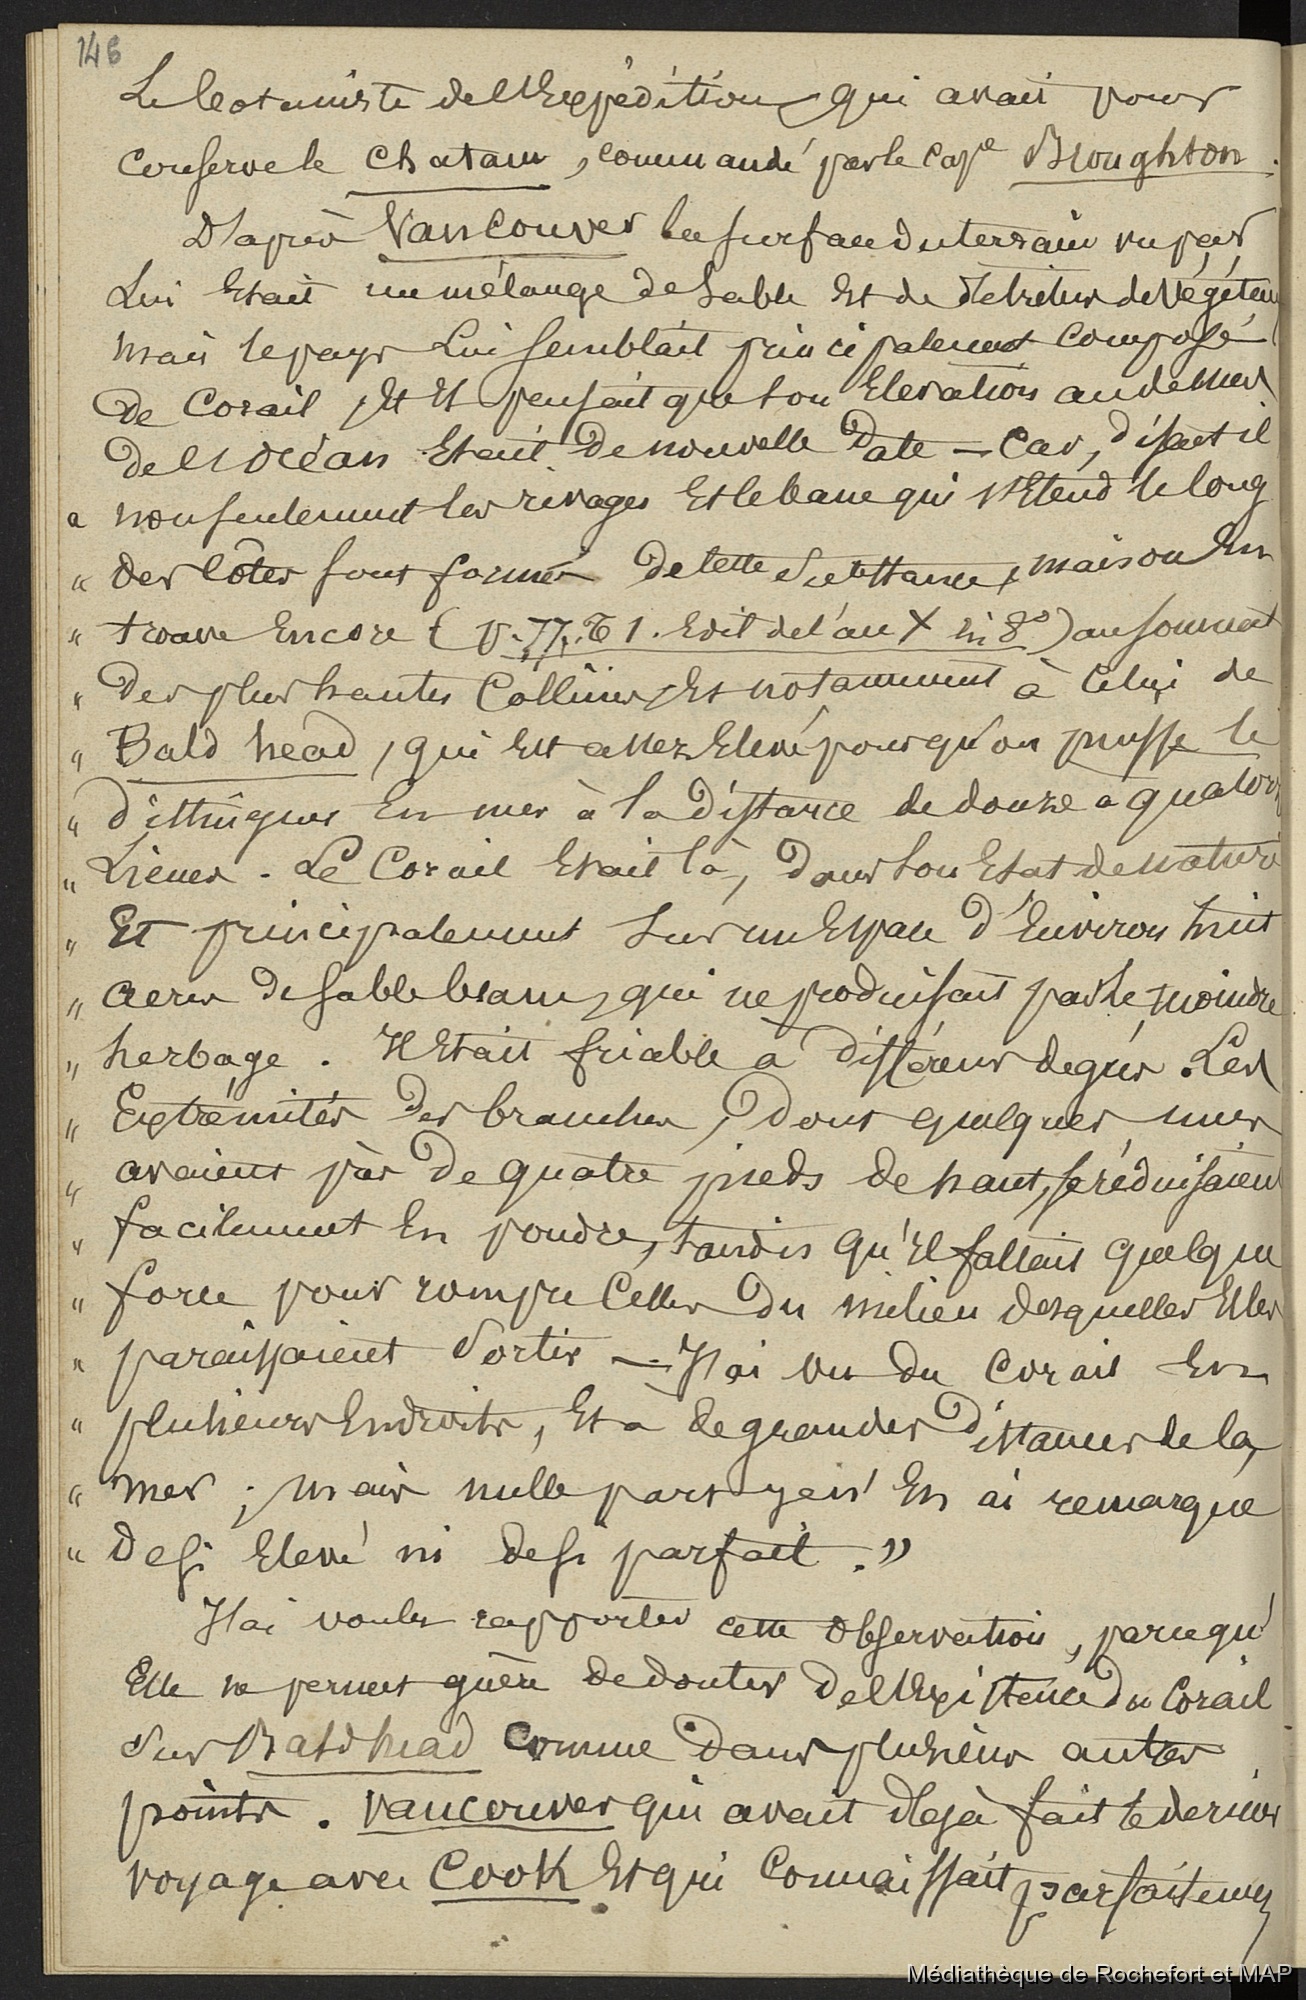 146
Le botaniste de l'Expédition, qui avait pour
conserve le Chatam, commandé par le Cape Broughton.
D'après Vancouver la surface du terrain vu par
Lui Etait un mélange de Sable Et de detritus de végétaux
mais le pays Lui semblait principalement composé
de Corail, Et Il pensait que son Elevation au dessus
de l'Océan Etait de nouvelle Date — Car, disait il
" non seulement les rivages Et le banc qui s'Etend le long
" des Côtes sont formés de cette Substance, mais on En
" trouve Encore (V. 77. T 1. Edit de l'an X in 8°) au sommet
" des plus hautes Collines, Et notamment à Celui de
" Bald head, qui Est assez Elevé pour qu'on puisse le
" distinguer En mer à la Distance de douze à quatorze
" Lieues. Le Corail Etait là, dans son Etat de nature
" Et principalement sur un Espace d'Environ huit
" acres de sable blanc, qui ne produisait pas le moindre
" herbage. Il Etait friable à différens degrés. Les
" Extrémités des branches, dont quelques unes
" avaient près de quatre pieds de haut, se réduisaient
" facilement En poudre, tandis qu'Il fallait quelque
" force pour rompre Celles du milieu desquelles Elles
" paraissaient Sortir — J'ai vu du Corail En
" plusieurs Endroits, Et à de grandes Distances de la
" mer ; mais nulle part je n'En ai remarqué
" de si Elevé ni de si parfait. "
J'ai voulu rapporter cette observation, parcequ'
Elle ne permet guère de douter de l'Existence du Corail
Sur Baldhead Comme dans plusieurs autres
points. Vancouver qui avait déjà fait le dernier
voyage avec Cook Et qui Connaissait parfaitement
Médiathèque de Rochefort et MAP